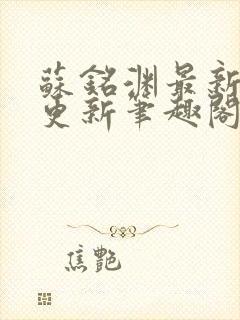 蘇銘淵最新
更新筆趣閣
焦艷